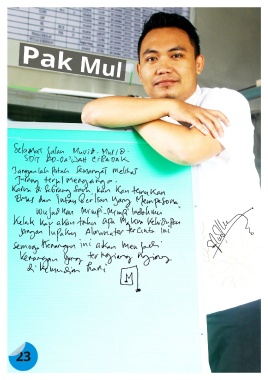 Pak Mul
Selamat jalan Murid-Murid
SDIT AD-DA'WAH CIBADAK
Janganlah Patah Semangat melihat
Jurang terjal menganga.
Karena di Sebrang Sana kan kau temukan
Emas dan Intan Berlian yang Mempesona
Wujudkan Mimpi-Mimpi Indahmu
Kelak kau akan tahu apa Makna Kehidupan
Jangan lupakan Almamater tercinta ini
Semoga Kenangan ini akan menjadi
Kenangan yang terngiang ngiang
di kemudian hari
M
23